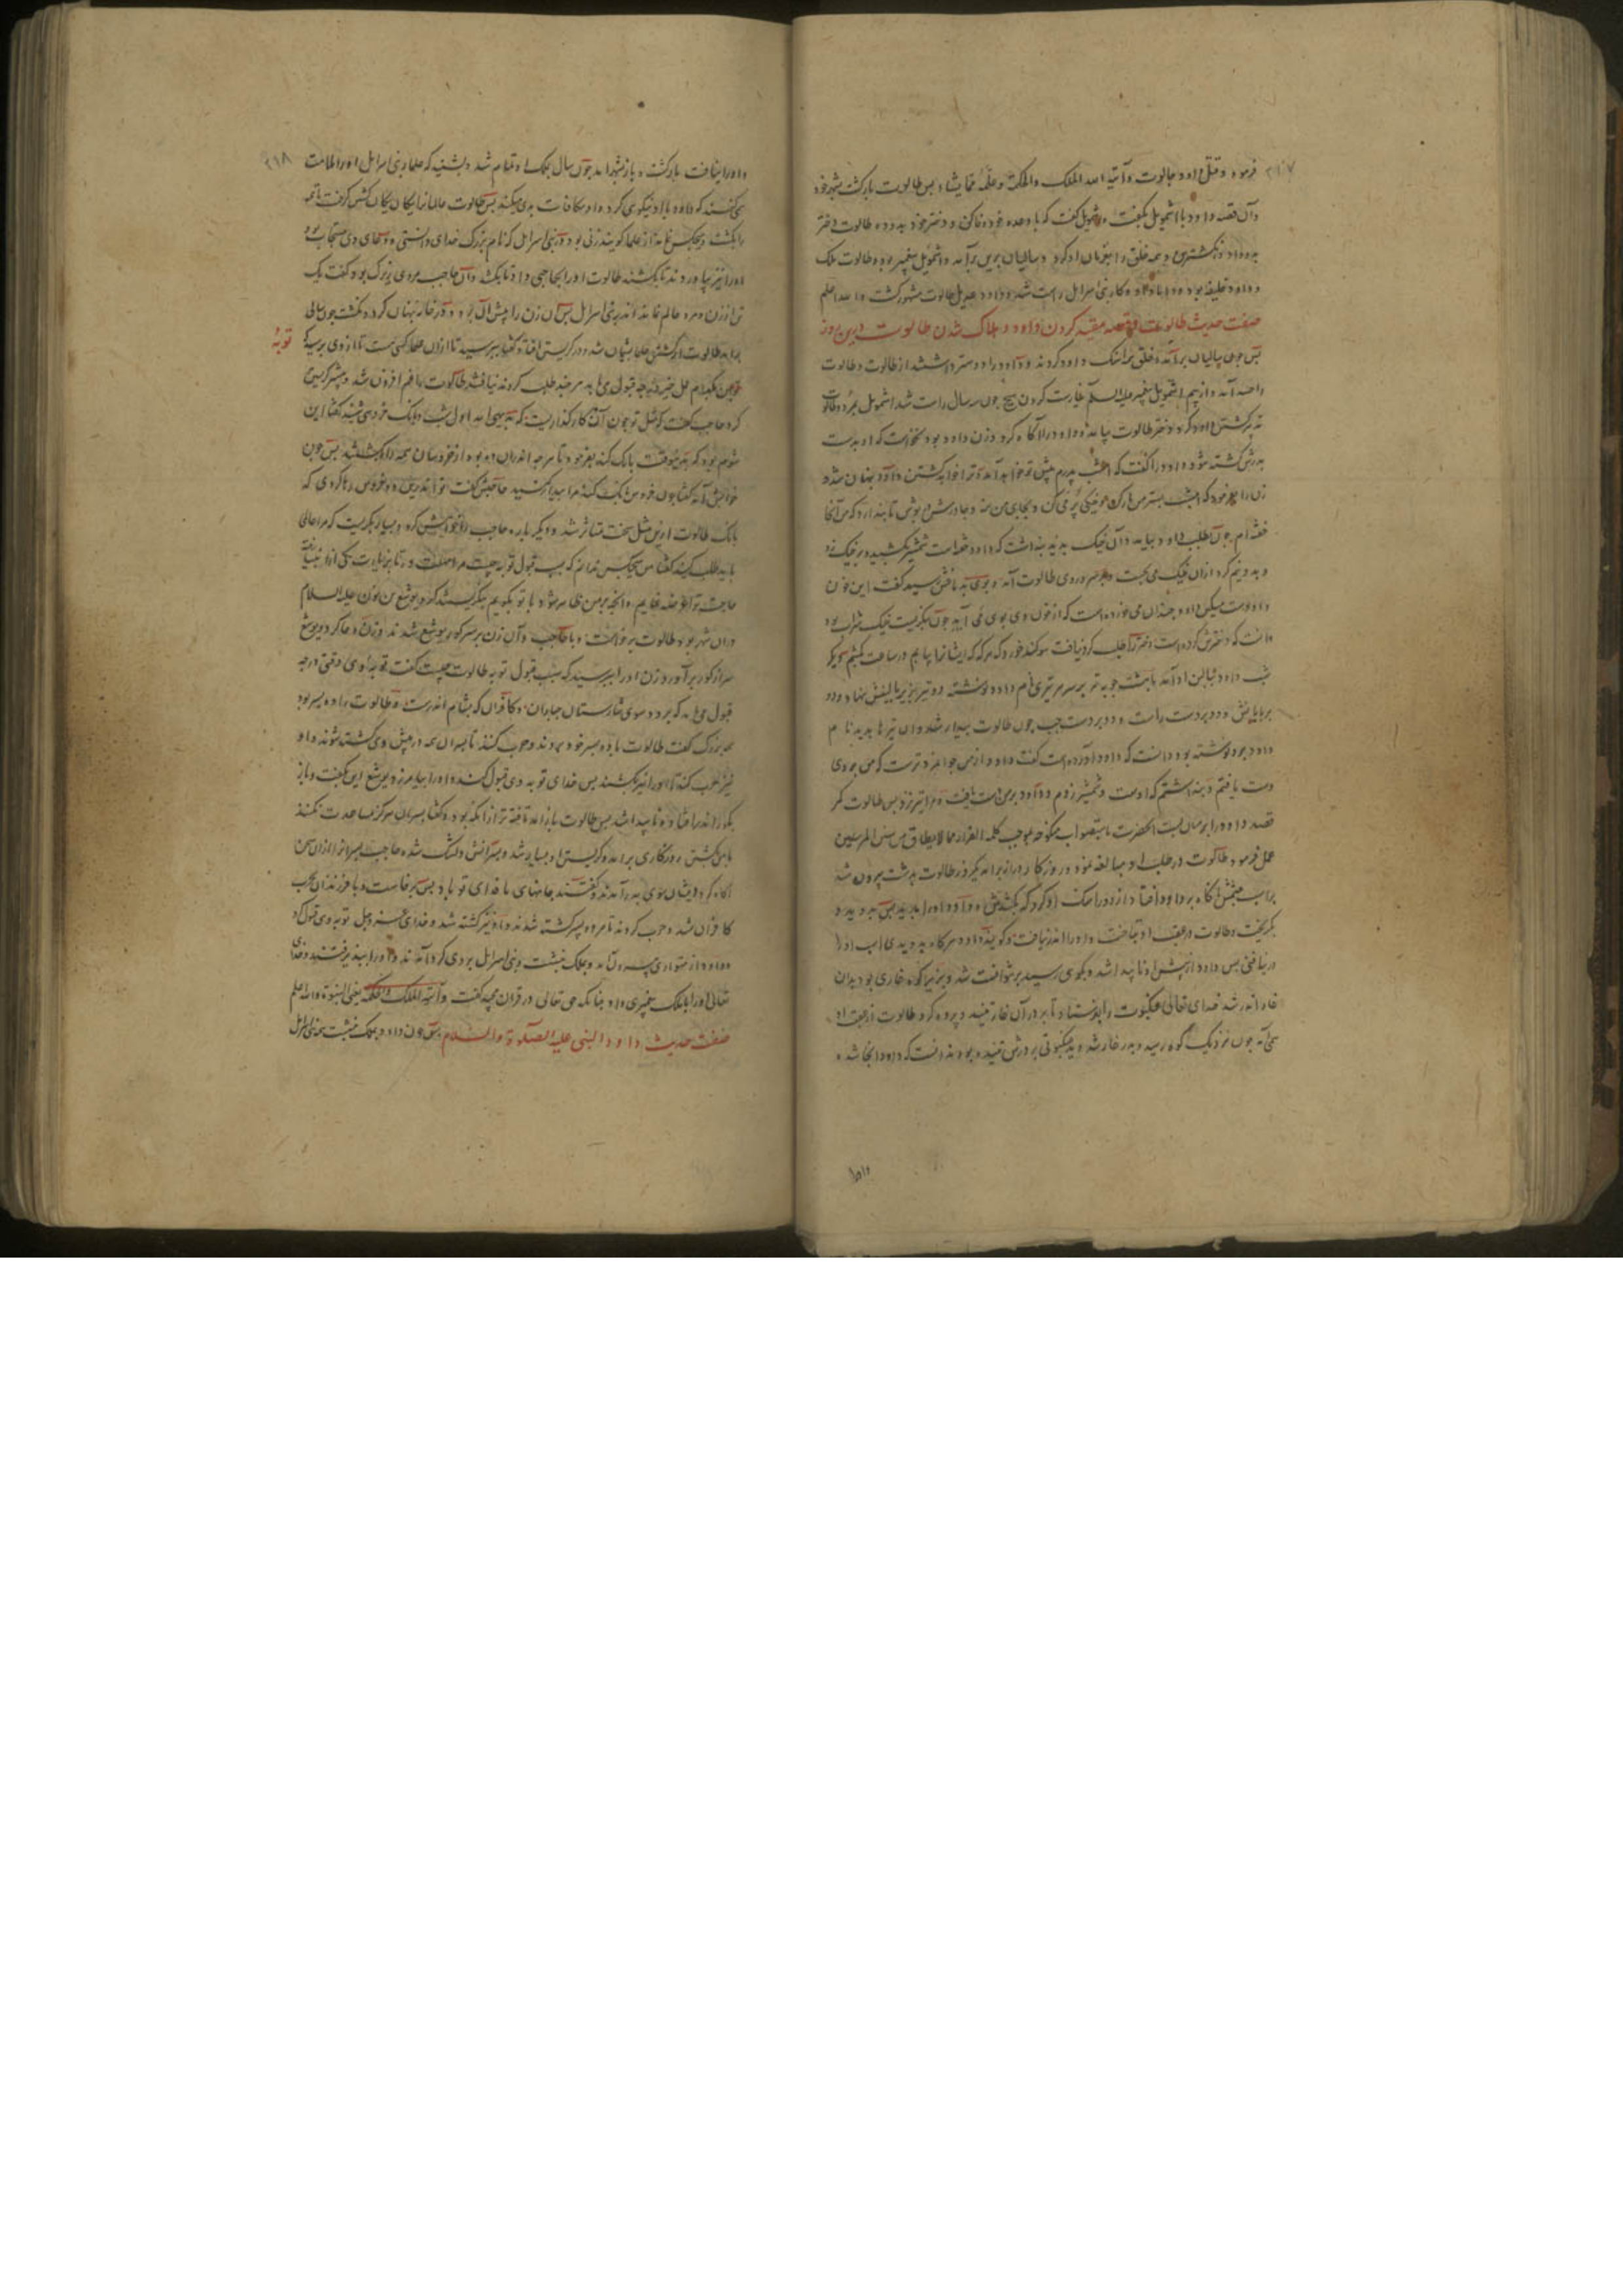 ۲۱۷
فرمود و قتل داود جالوت و آتیه الله الملک والحکمة وعلّمه مما یشاء پس طالوت بازکشت بشهر خود
و آن قصه داود با اشمویل بکفت و اشمویل کفت که با وعده خود وفا کن و دختر خود بده و طالوت دختر
بداود و انکشترین و همه خلق را بفرمان او کرد و سالیان برین برآمد و اشمویل پیغمبر بود و طالوت ملک
و داود خلیفه بود و کار بنی اسرایل راست شد و داود جالوت مشهور کشت والله اعلم
صفت حدیث طالوت قصد کردن داود و هلاک شدن طالوت
پس چون سالیان برآمد خلق داود کردند و داود را دوستر داشتند از طالوت و طالوت
را حسد آمد و از بیم اشمویل پیغمبر علیه السلام نیارست کردن هیچ چون سه سال راست شد اشمویل بمرد و طالوت
کشتن داود کرد دختر طالوت بیامد و داود را آکاه کرد و زن داود بود نخواست که او بدست
پدرش کشته شود داود را کفت که امشب پدرم پیش تو خواهد آمد و ترا خواهد کشتن داود پنهان شد و
زن را بفرمود که امشب بستر من خیکی پر می کن و بجای من نه و چادر بپوش تا پندارد که من آنجا
خفته ام چون طلب داود بیامد و آن خیک بدید پنداشت که داود خفته است شمشیر بکشید و بر خیک زد
و بدو نیم کرد از آن خیک می بجست و بر سر و روی طالوت آمد و بوی به بافش رسید کفت این خون
داود است مسکین داود چندان می خورده است که از خون وی بوی می آید چون بنکریست خیک شراب بود
دانست که دخترش کرده است دختر را طلب کرد نیافت سوکند خورد که هر که که ایشانرا بیابم در ساعت بکشم دیکر
شب داود ببالین او آمد با هشت چوبه تیر بر سر هر تیری نام داود نوشته دو تیر بزیر بالینش نهاد و دو
بر پایانش و دو بر دست راست و دو بر دست چپ چون طالوت بیدار شد و آن تیرها بدید نام
داود بر او نوشته بود دانست که داود آورده است کفت داود از من جوانمردترست که من بر وی
دست یافتم و پنداشتم که اوست و شمشیر زدم و داود بر من دست یافت و مرا تیر نزد پس طالوت کمر
قصد داود را بر میان بست آنحضرت بموجب کلمه الفرار مما لا یطاق من سنن المرسلین
عمل فرمود طالوت در طلب او مبالغه نمود و روزکار دراز برآمد یکروز طالوت بدشت بیرون شد
براسب
بکریخت و طالوت در عقب او بتاخت و او را اندر نیافت و کویند داود هر کاه بدویدی اسب او را
درنیافتی پس داود از پیش او ناپیدا شد و بکوهی رسید و بزیر آن کوه غاری بود بدان
غار اندر شد خدای تعالی عنکبوت را بفرستاد تا بر در آن غار تنید و پرده کرد و طالوت از عقب او
همی آمد چون نزدیک کوه رسید و بدر غار شد و بدید عنکبوتی بر درش تنیده بود ندانست که داود آنجا شده
و او را
۲۱۸
و او را نیافت بازکشت و باز بشهر آمد چون سال ملک او تمام شد و بشنید که علما بنی اسرایل او را ملامت
همی کنند که داود با او نیکوی کرد و او مکافات بدی میکند پس طالوت عالمانرا یکان یکان کشتن کرفت تا همه
را بکشت و هیچکس نماند از علما کویند زنی بود در بنی اسرایل که نام بزرک خدای دانستی و دعای وی مستجاب بود
او را نیز بیاوردند تا بکشند طالوت او را بحاجبی داد تا بکشد و آن حاجب مردی بزرک بود کفت یک
تن از زن و مرد عالم نماند اندر بنی اسرایل پس آن زن را پیش آن برد و در خانه پنهان کرد و نکشت چون سالی
برآمد طالوت از کشتن علما پشیمان شد و در کریستن افتاد و کفتا بپرسید تا از آن علما کسی هست تا از وی بپرسید که
توبهٔ
من بکدام عمل خیر قبول می آید هر چند طلب کردند نیافتند طالوت را غم افزون شد و بیشتر کریستن
کرد حاجب کفت که مثل تو چون آن کارکذاریست که بدیهی آمد اول شب و بانک خروسی شنید کفتا این
شوم بود که بیوقت بانک کند بفرمود تا هر چه اندران ده بود از خروسان همه را بکشتند پس چون
خوابش آمد کفتا چون خروس بانک کند مرا بیدار کنید حاجبش کفت تو اندرین ده خروس رها کردی که
بانک کند طالوت ازین مثل سخت متاثر شد و دیکر باره حاجب را خواهش کرد و بسیار بکریست که مرا عالمی
باید طلب کنید کفتا من هیچکس ندانم که سبب قبول توبه چیست مرا مهلت ده تا بزیارت یکی از انبیا رفته
حاجت تو عرضه نمایم و آنچه بر من ظاهر شود با تو بکویم یوشع بن نون علیه السلام
در آن شهر بود طالوت برخاست و با حاجب و آن زن بر سر کور یوشع شدند و زن دعا کرد و یوشع
سر از کور برآورد و زن او را بپرسید که سبب قبول توبه طالوت چیست کفت توبهٔ وی وقتی درجه
قبول می یابد که برود سوی شارستان جباران و کافران که بشام اندرست و طالوت را ده پسر بود
همه بزرک کفت طالوت با ده پسر خود بروند و حرب کنند تا پسران همه در پیش وی کشته شوند و او
نیز حرب کند تا او را نیز بکشند پس خدای توبه وی قبول کند و او را بیامرزد یوشع این بکفت و باز
بکور اندر افتاد و ناپیدا شد پس طالوت باز آمد تافته تر از آنکه بود و کفتا پسران هرکز مساعدت نکنند
با من بکشتن روزکاری برآمد و کریستن او بسیار شد و پسرانش دلتنک شدند حاجب پسرانرا از آن سخن
آکاه کرد ایشان بدر آمدند و کفتند جانهای ما فدای تو باد پس برخاست و با فرزندان بحرب
کافران شد و حرب کردند تا هر ده پسر کشته شدند و او نیز کشته شد و خدای عز وجل توبه وی قبول کرد
و داود از متواری بیرون آمد و بملک بنشست و بنی اسرایل بر وی کرد آمدند و او را بپذیرفتند و خدای
تعالی او را با ملک پیغمبری داد چنانکه حق تعالی در قرآن مجید کفت وآتیه الملک والحکمة یعنی النبوة والله اعلم
صفت حدیث داود النبی علیه الصلوة والسلام پس چون داود بملک بنشست همه بنی اسرایل